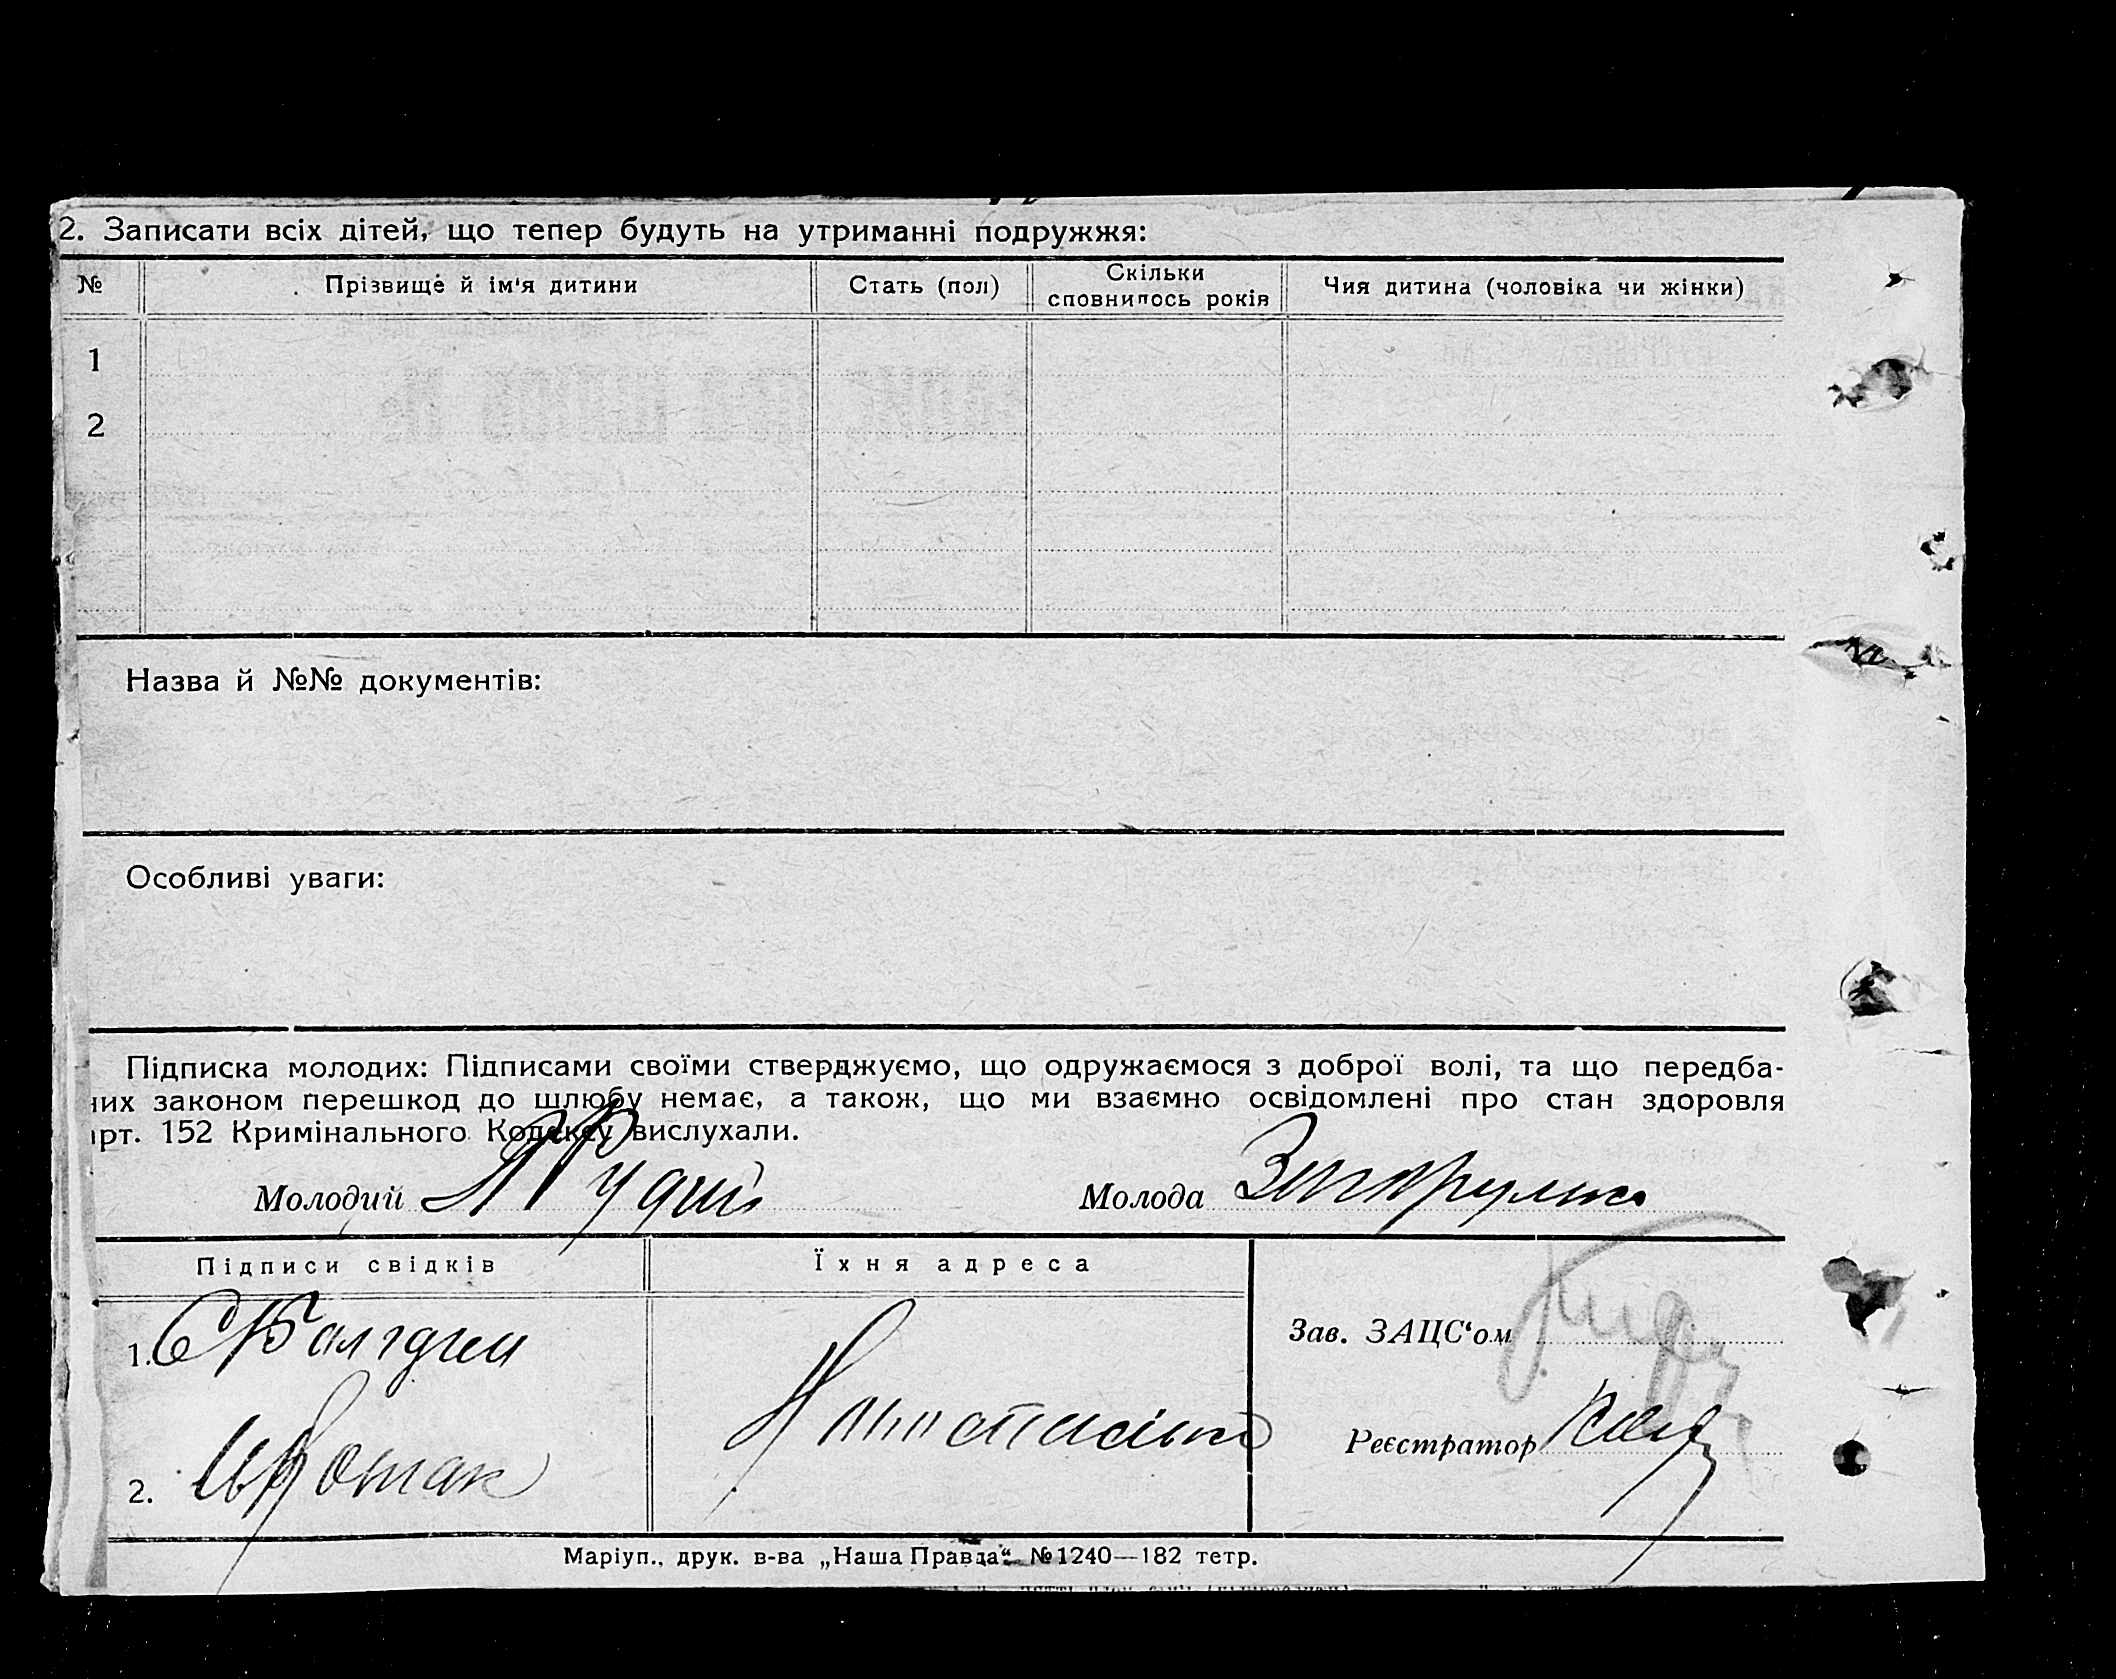 2. Записати всіх дітей, що тепер будуть на утриманні подружжя:
№ Прізвище й ім'я дитини Стать (пол) Скільки сповнилось років Чия дитина (чоловіка чи жінки)
1
2
Назва й №№ документів:
Особливі уваги:
Підписка молодих: Підписами своїми стверджуємо, що одружаємося з доброї волі, та що передба-
них законом перешкод до шлюбу немає, а також, що ми взаємно освідомлені про стан здоровля
арт. 152 Кримінального Кодексу вислухали.
Молодий Рудий Молода
Підписи свідків Їхня адреса
Зав. ЗАЦС‘ом
1.
Реєстратор
2.
Маріуп., друк. в-ва „Наша Правда“ №1240—182 тетр.